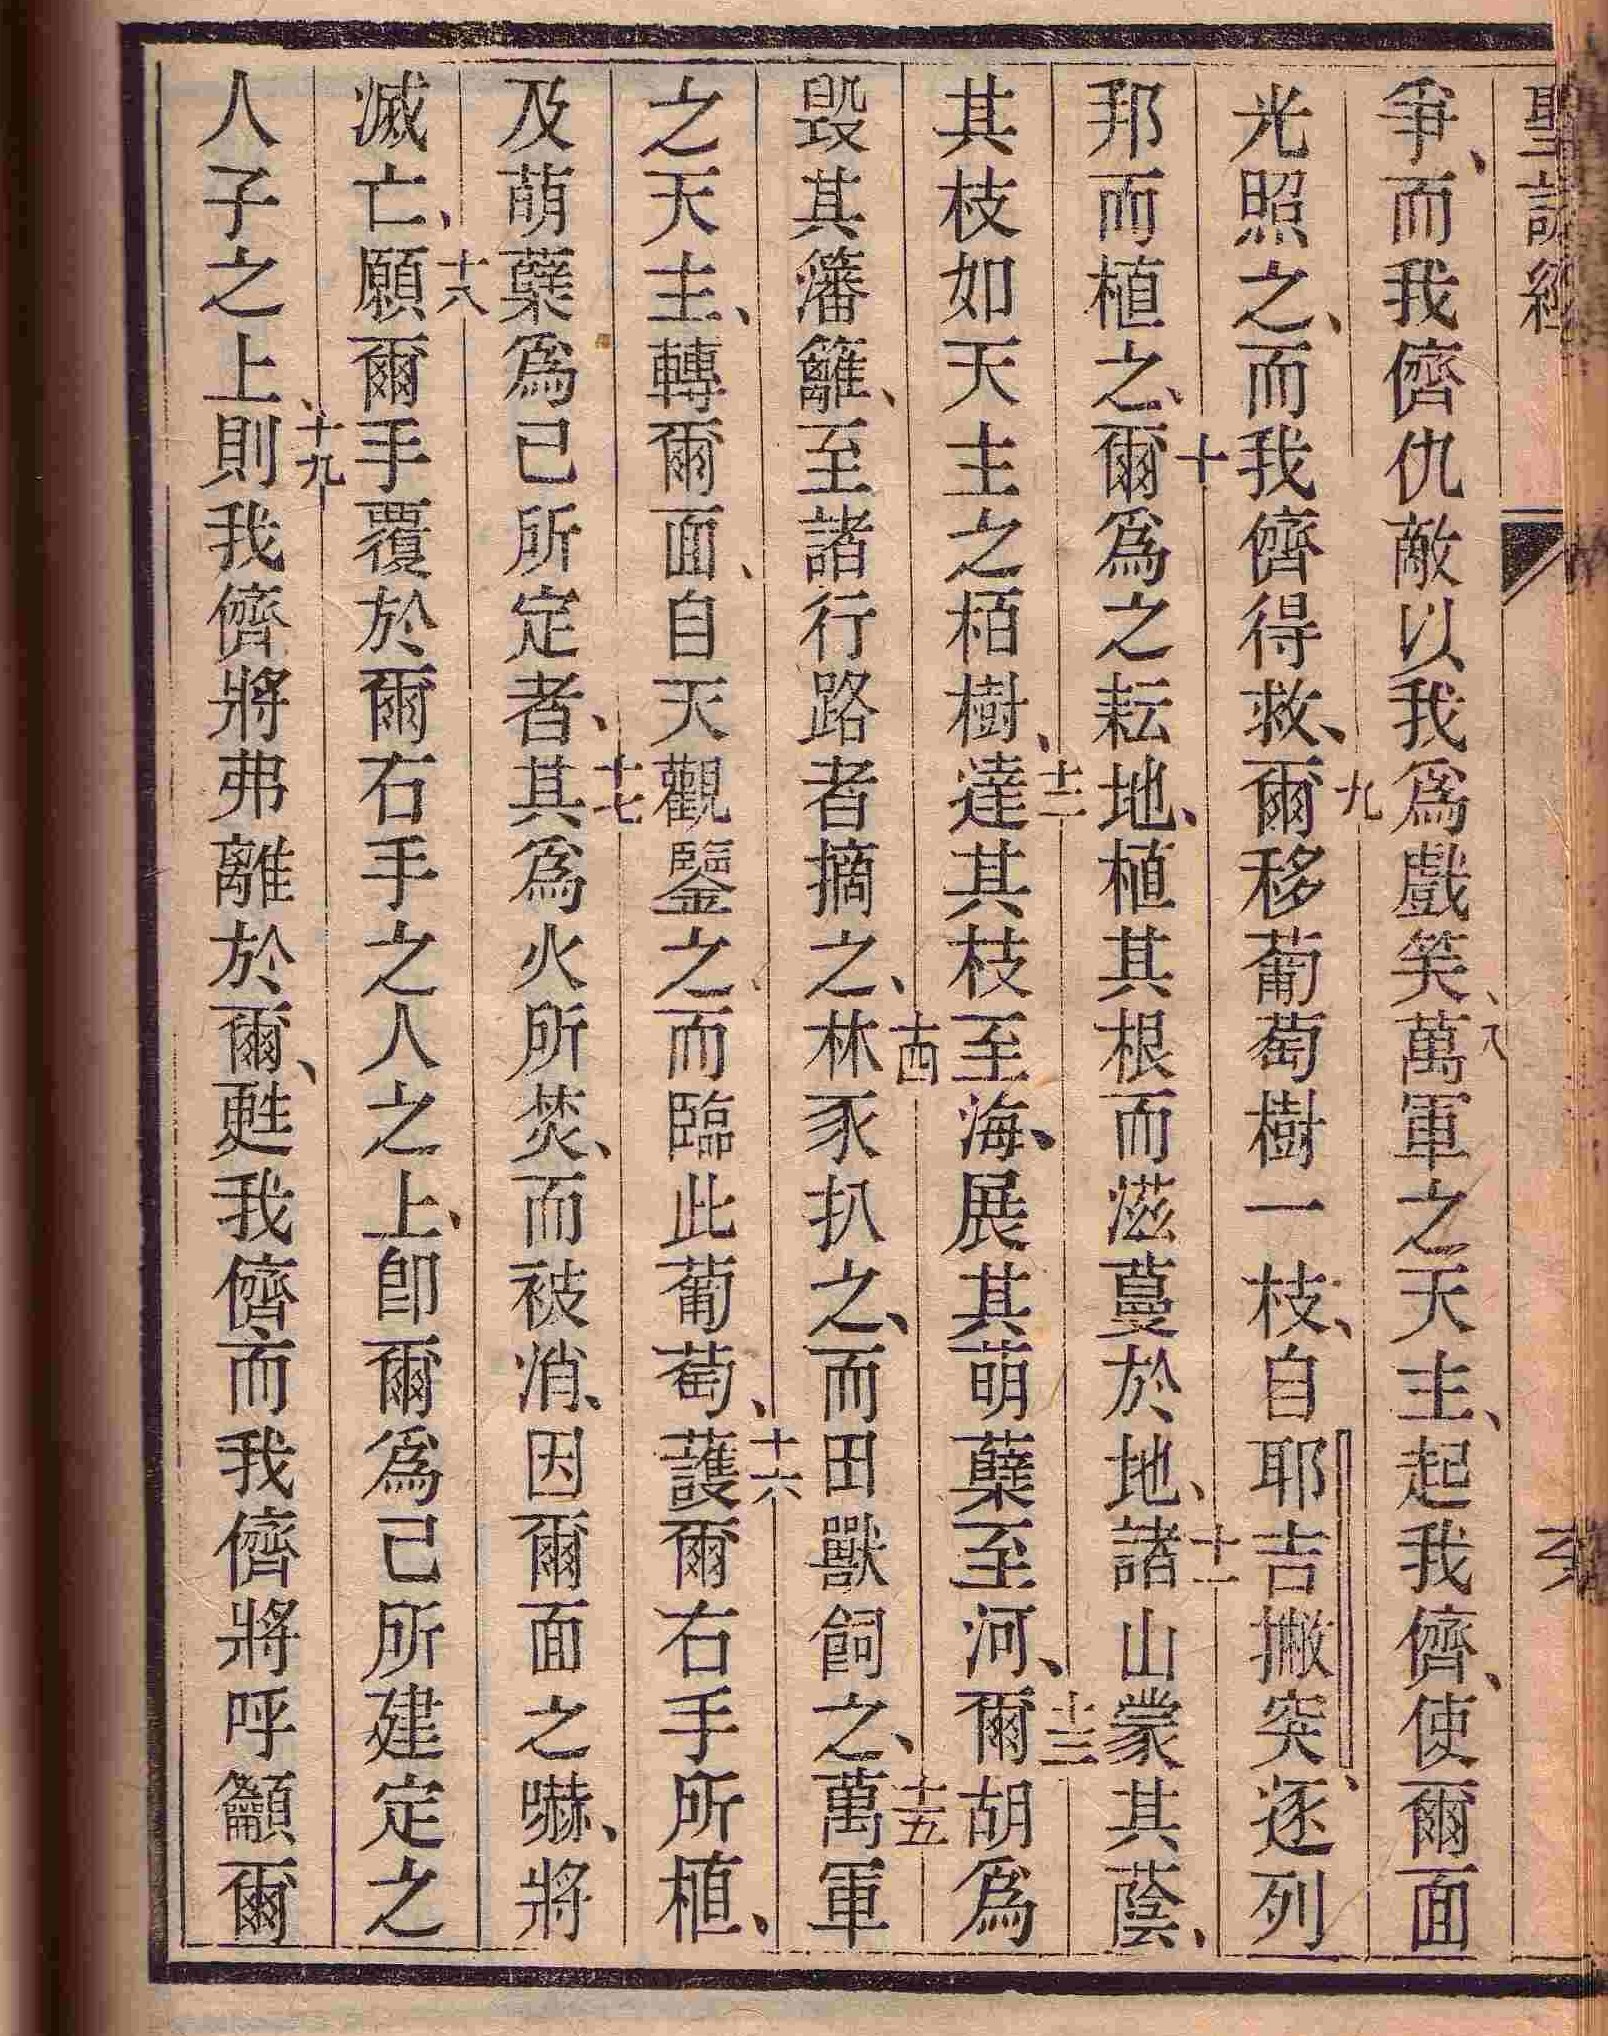 聖詠經
爭、而我儕仇敵以我爲戲笑、八萬軍之天主、起我儕、使爾面
光照之、而我儕得救、九爾移葡萄樹一枝、自耶吉撇突、逐列
邦而植之、十爾爲之耘地、植其根而滋蔓於地、十一諸山蒙其蔭、
其枝如天主之栢樹、十二達其枝至海、展其萌蘖至河、十三爾胡爲
毀其藩籬、至諸行路者摘之、十四林豕扒之、而田獸飼之、十五萬軍
之天主、轉爾面、自天觀鑒之、而臨此葡萄、十六護爾右手所植、
及萌蘖爲己所定者、十七其爲火所焚、而被消、因爾面之嚇、將
滅亡、十八願爾手覆於爾右手之人之上、卽爾爲己所建定之
人子之上、十九則我儕將弗離於爾、甦我儕而我儕將呼籲爾